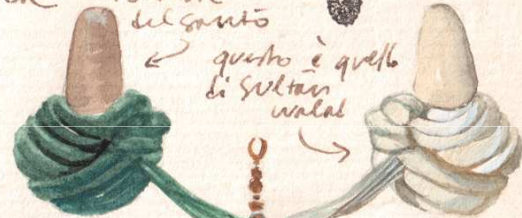 del santo
questo è quello
di Sultan
walad